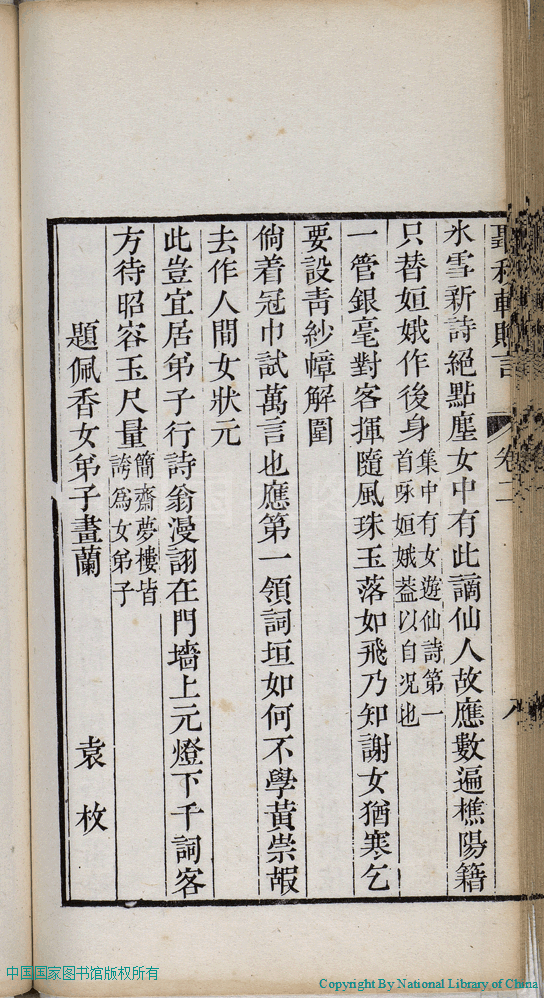 聽秋軒贈言 卷二 八
氷雪新詩絕點塵女中有此謫仙人故應數遍樵陽籍
只替姮娥作後身集中有女遊仙詩第一
首咏姮娥葢以自况也
一管銀毫對客揮隨風珠玉落如飛乃知謝女猶寒乞
要設靑紗幛解圍
倘着冠巾試萬言也應第一領詞垣如何不學黃崇嘏
去作人間女狀元
此豈宜居弟子行詩翁漫詡在門墻上元燈下千詞客
方待昭容玉尺量簡齋夢樓皆
誇爲女弟子
題佩香女弟子畫蘭 袁枚
中国国家图书馆版权所有
Copyright By National Library of China